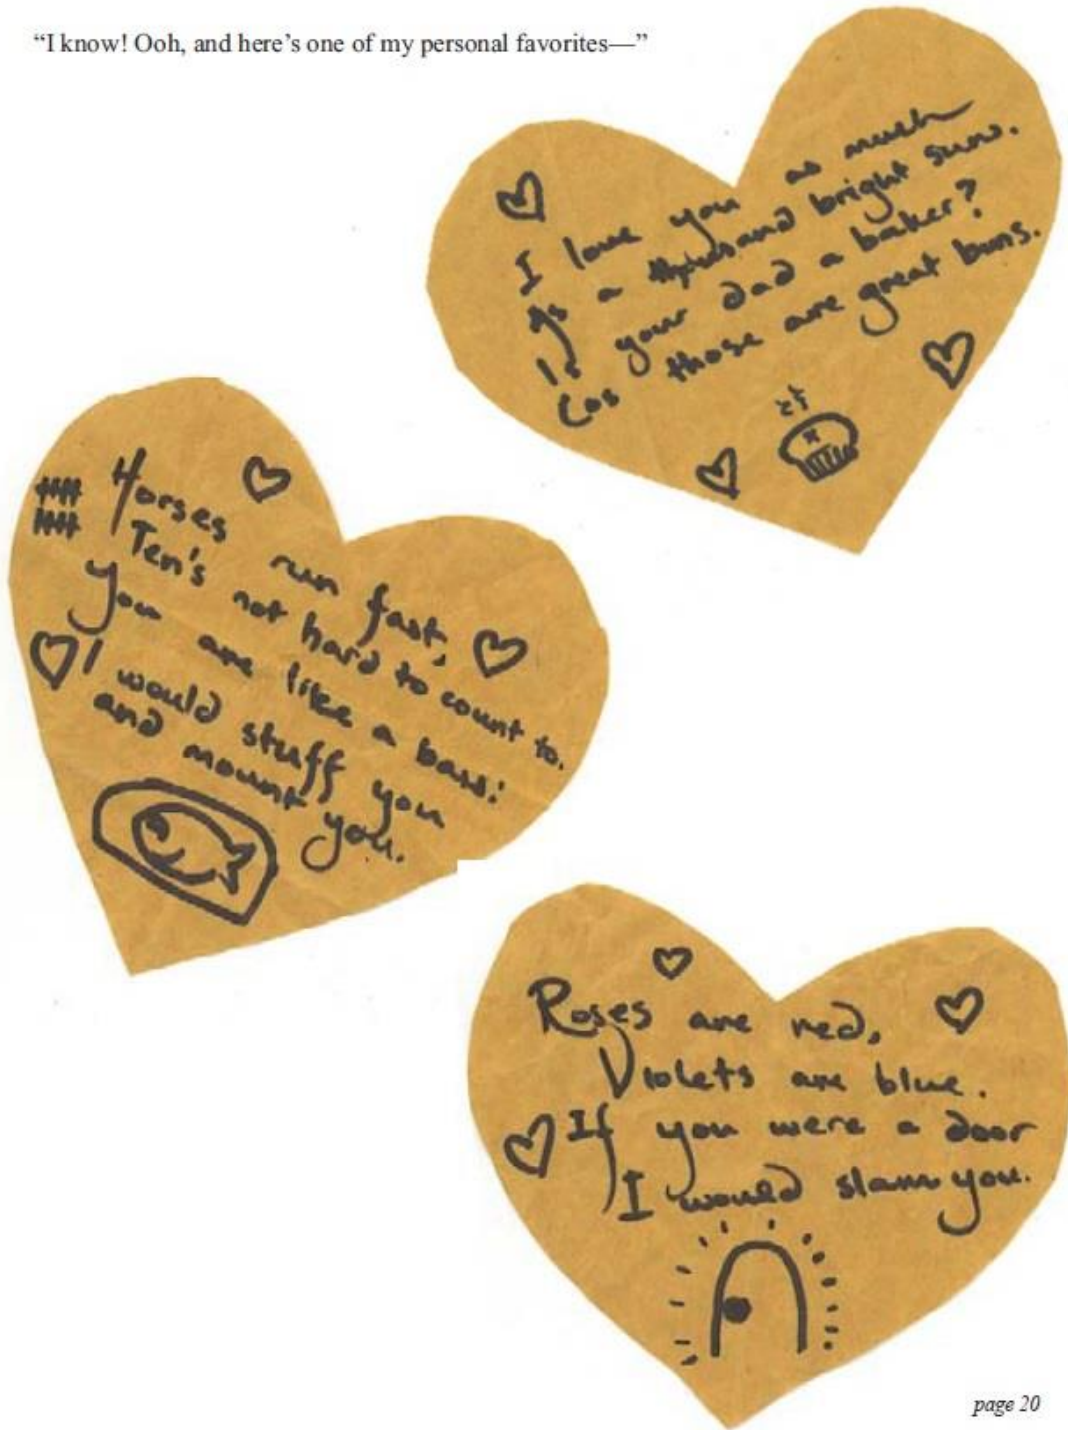 “I know! Ooh, and here’s one of my personal favorites—”
I love you as much
As a thousand bright suns.
Is your dad a baker?
Cos those are great buns.
Horses run fast,
Ten's not hard to count to.
You are like a bass:
I would stuff you
and mount you.
Roses are red,
Violets are blue.
If you were a door
I would slam you.
page 20